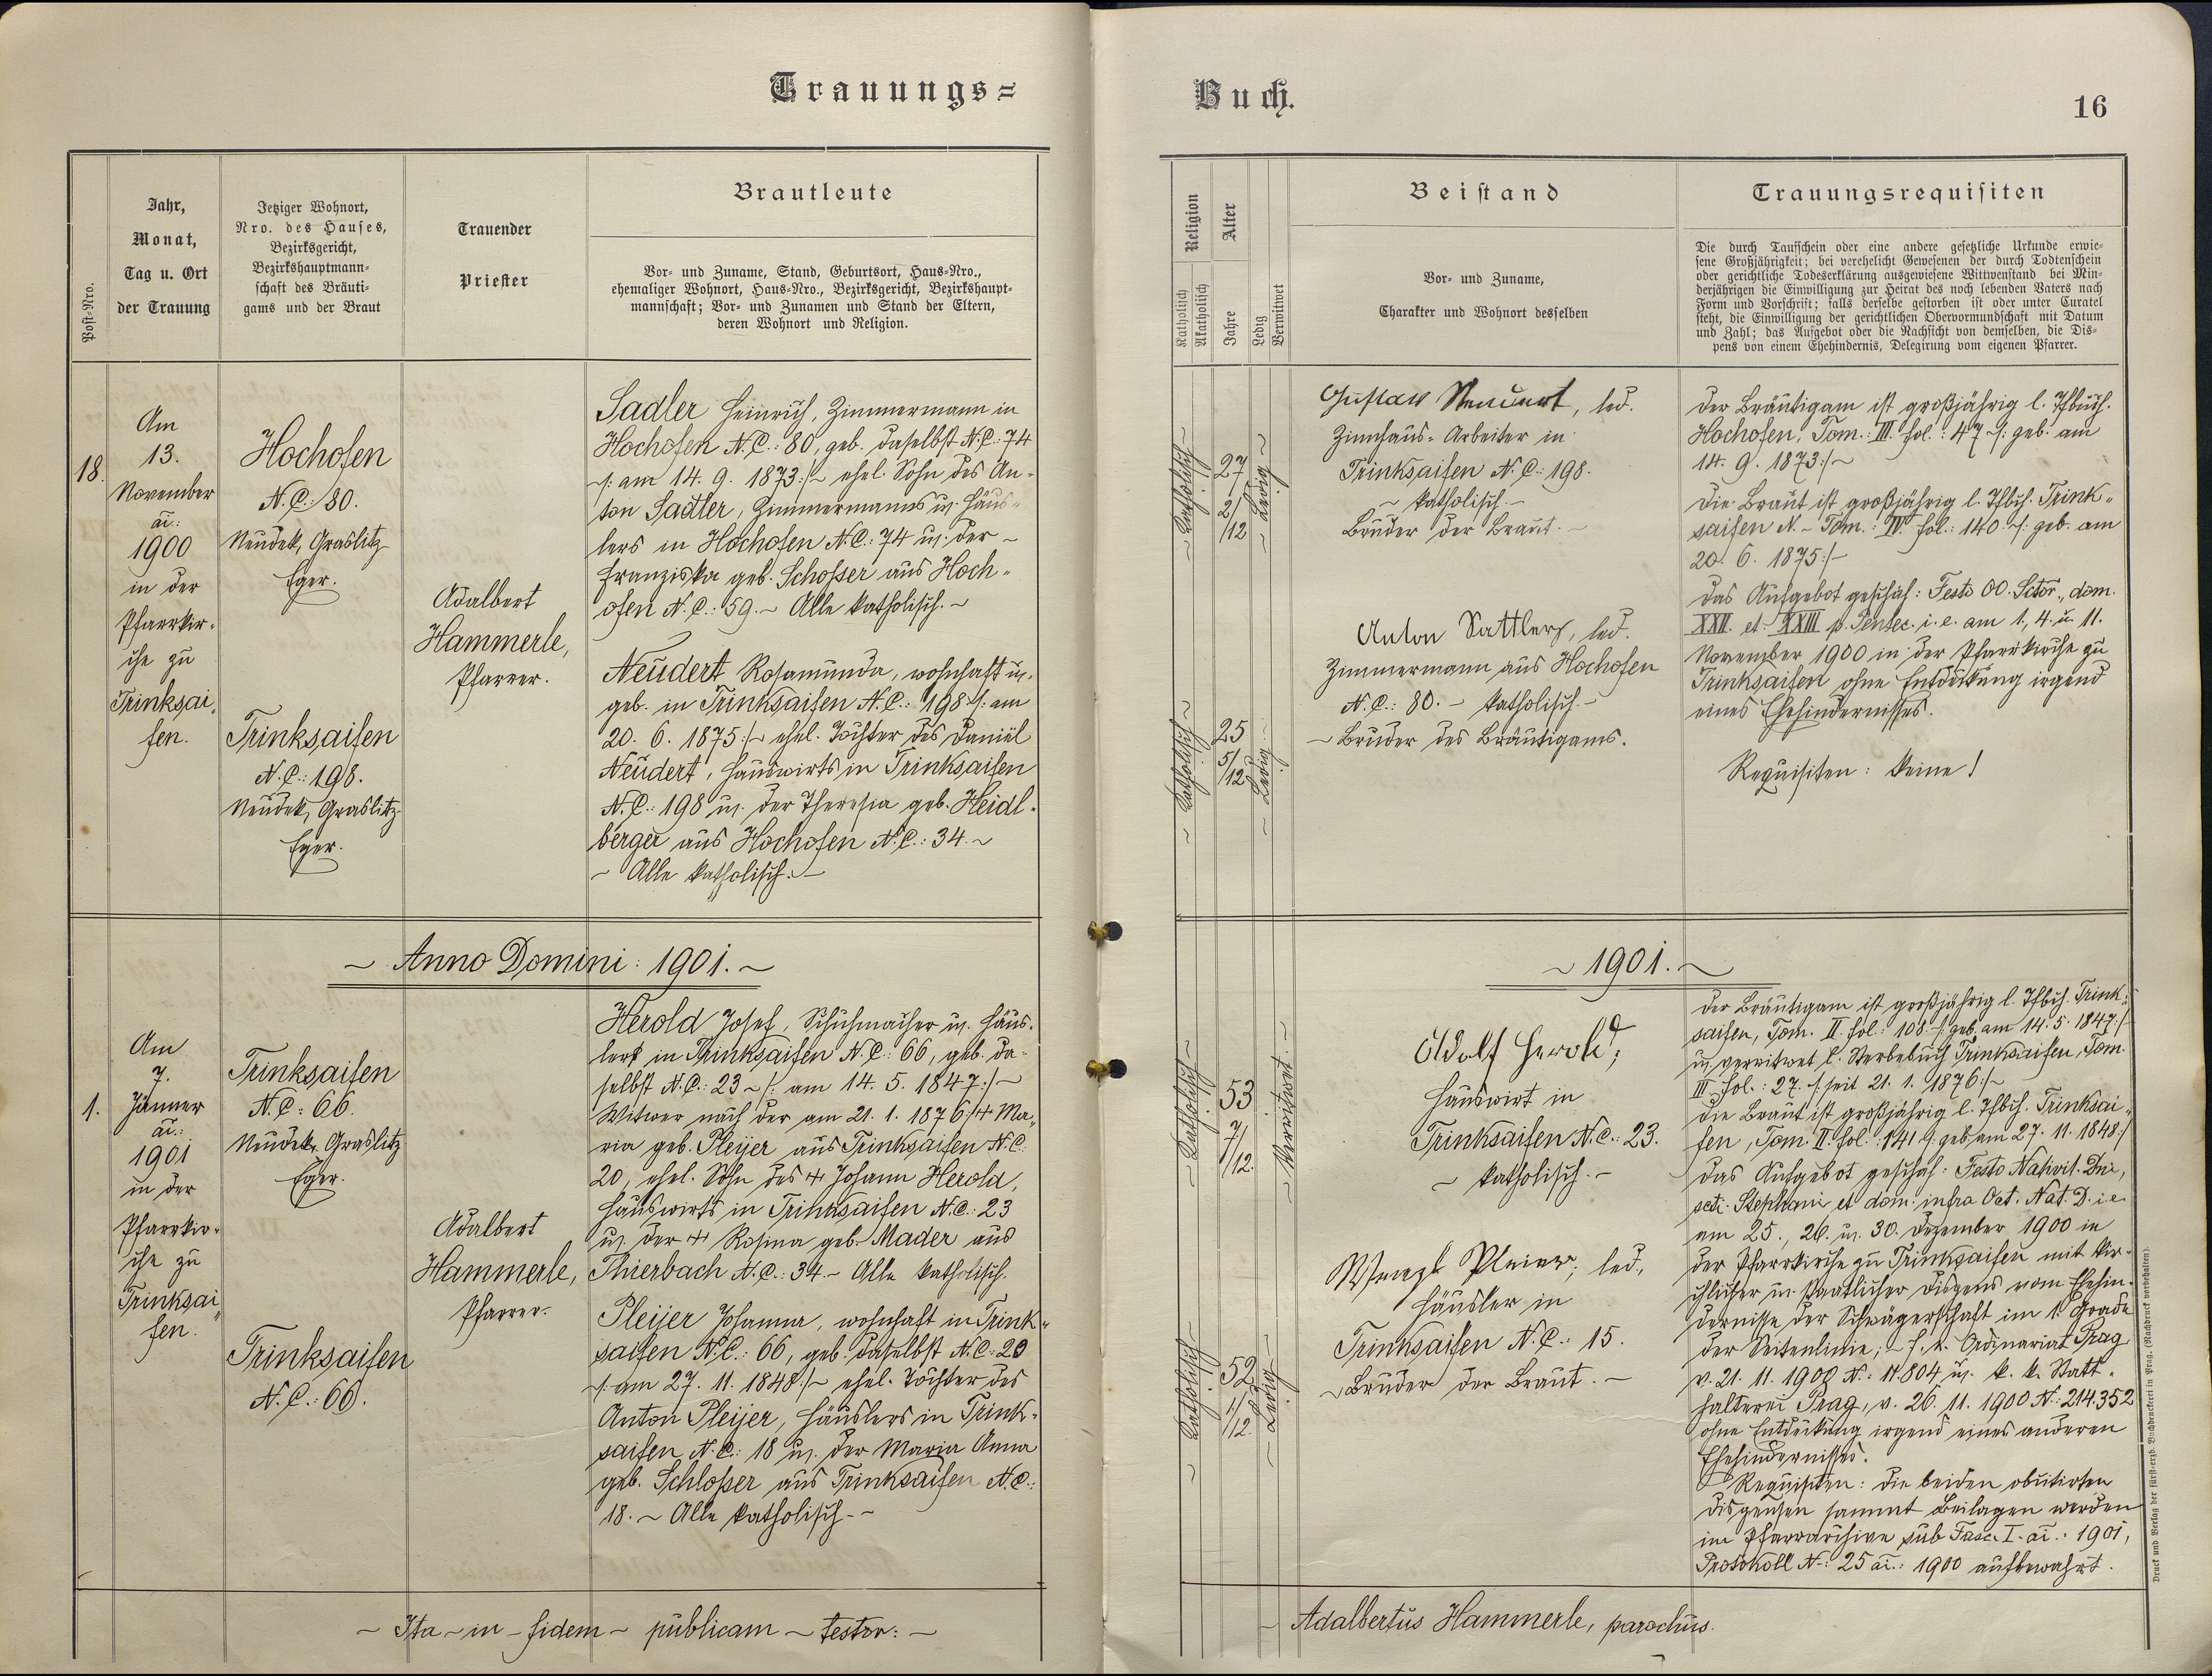 Trauungs=
Buch.
16
Post-Nro.
Jahr,
Monat,
Tag u. Ort
der Trauung
Jetziger Wohnort,
Nro. des Hauses,
Bezirksgericht,
Bezirkshauptmann-
schaft des Bräuti-
gams und der Braut
Trauender
Priester
Brautleute
Vor- und Zuname, Stand, Geburtsort, Haus-Nro.,
ehemaliger Wohnort, Haus-Nro., Bezirksgericht, Bezirkshaupt-
mannschaft; Vor- und Zunamen und Stand der Eltern,
deren Wohnort und Religion.
Religion
Katholisch
Akatholisch
Alter
Jahre
Ledig
Verwitwet
Beistand
Vor- und Zuname,
Charakter und Wohnort desselben
Trauungsrequisiten
Die durch Taufschein oder eine andere gesetzliche Urkunde erwie-
sene Großjährigkeit; bei verehelicht Gewesenen der durch Todtenschein
oder gerichtliche Todeserklärung ausgewiesene Wittwenstand bei Min-
derjährigen die Einwilligung zur Heirat des noch lebenden Vaters nach
Form und Vorschrift; falls derselbe gestorben ist oder unter Curatel
steht, die Einwilligung der gerichtlichen Obervormundschaft mit Datum
und Zahl; das Aufgebot oder die Nachsicht von demselben, die Dis-
pens von einem Ehehindernis, Delegirung vom eigenen Pfarrer.
18.
Am
13.
November
ai:
1900
in der
Pfarrkir-
che zu
Trinksai-
fen.
Hochofen
N.C.: 80.
Neudek, Graslitz
Eger.
Trinksaifen
N.C.: 198.
Neudek, Graslitz
Eger.
Adalbert
Hammerle,
Pfarrer.
Sadler Heinrich, Zimmermann in
Hochofen N.C.: 80, geb. daselbst N.C.: 74
~/: am 14. 9. 1873 :/~ ehel. Sohn des An-
ton Sadler, Zimmermanns u. Häus-
lers in Hochofen N.C.: 74 u. der ~
Franziska geb. Schosser aus Hoch-
ofen N.C.: 59. ~ Alle katholisch. ~
Neudert Rosamunda, wohnhaft u.
geb. in Trinksaifen N.C.: 198 /: am
20. 6. 1875 :/~ ehel. Tochter des Daniel
Neudert, Hauswirts in Trinksaifen
N.C.: 198 u. der Theresia geb. Heidl-
berger aus Hochofen N.C.: 34. ~
~ Alle katholisch. ~
~ Katholisch ~
27
2/12
~ Ledig ~
~ Katholisch ~
25
5/12
~ Ledig ~
Gustav Neudert, led.
Zinnhaus-Arbeiter in
Trinksaifen N.C.: 198.
~ katholisch. ~
Bruder der Braut. ~
Anton Sattler, led.
Zimmermann aus Hochofen
N.C.: 80. ~ katholisch. ~
~ Bruder des Bräutigams.
Der Bräutigam ist großjährig l. Tfbuch.
Hochofen, Tom.: III. fol.: 47 ~/: geb. am
14. 9. 1873 :/~
Die Braut ist großjährig l. Tfbch. Trink-
saifen N. ~ Tom.: IV. fol.: 140 ~/: geb. am
20. 6. 1875 :/~
Das Aufgebot geschah: Festo OO. Sctor., dom.
XXII. et XXIII p. Pentec. i. e. am 1., 4. u. 11.
November 1900 in der Pfarrkirche zu
Trinksaifen ohne Entdeckung irgend
eines Ehehindernisses.
Requisiten: keine!
~ Anno Domini: 1901. ~
~ 1901. ~
1.
Am
7.
Jänner
ai.:
1901
in der
Pfarrkir-
che zu
Trinksai-
fen.
Trinksaifen
N.C.: 66.
Neudek, Graslitz
Eger.
Trinksaifen
N.C.: 66.
Adalbert
Hammerle,
Pfarrer.
Herold Josef, Schuhmacher u. Häus-
ler in Trinksaifen N.C.: 66, geb. da-
selbst N.C.: 23 ~/: am 14. 5. 1847 :/~
Witwer nach der am 21. 1. 1876 + Ma-
ria geb. Pleijer aus Trinksaifen N.C.:
20, ehel. Sohn des + Johann Herold,
Hauswirts in Trinksaifen N.C.: 23
u. der + Rosina geb. Mader aus
Thierbach N.C.: 34. ~ Alle katholisch.
Pleijer Johanna, wohnhaft in Trink-
saifen N.C.: 66, geb. daselbst N.C.: 20
~/: am 27. 11. 1848 :/~ ehel. Tochter des
Anton Pleijer, Häuslers in Trink-
saifen N.C.: 18 u. der Maria Anna
geb. Schlosser aus Trinksaifen N.C.:
18. ~ Alle katholisch. ~
~ Katholisch ~
53
7/12.
~ Verwitwet. ~
~ Katholisch ~
52
1/12.
~ Ledig ~
Adolf Herold,
Hauswirt in
Trinksaifen N.C.: 23.
~ katholisch. ~
Wenzl Pleier, led.,
Häusler in
Trinksaifen N.C.: 15.
~ Bruder der Braut. ~
Der Bräutigam ist großjährig l. Tfbch. Trink-
saifen, Tom. II. fol.: 108. /: geb. am 14. 5. 1847 :/
u. verwitwet l. Sterbebuch Trinksaifen, Tom.
III. fol.: 27. /: seit 21. 1. 1876 :/~
Die Braut ist großjährig l. Tfbch. Trinksai-
fen, Tom. II. fol.: 141 /: geb. am 27. 11. 1848 :/
Das Aufgebot geschah: Festo Nativit. Dni,
scti. Stephani et dom. infra Oct. Nat. D. i. e.
am 25., 26. u. 30. Dezember 1900 in
der Pfarrkirche zu Trinksaifen mit kir-
chlicher u. staatlicher Dispens vom Ehehin-
dernisse der Schwägerschaft im 1. Grade
der Seitenlinie; ~ f. e. Ordinariat Prag
v. 21. 11. 1900 N.: 11.804 u. k. k. Statt-
halterei Prag, v. 26. 11. 1900 N.: 214.352
ohne Entdeckung irgend eines anderen
Ehehindernisses.
Requisiten: Die beiden obcitirten
Dispensen sammt Beilagen werden
im Pfarrarchive sub Fasc. I. ai.: 1901,
Protokoll N.: 25 ai.: 1900 aufbewahrt.
~ Ita ~ in ~ fidem ~ publicam ~ testor: ~
~ Adalbertus Hammerle, parochus.
Druck und Verlag der fürst-erzb. Buchdruckerei in Prag. (Nachdruck vorbehalten).